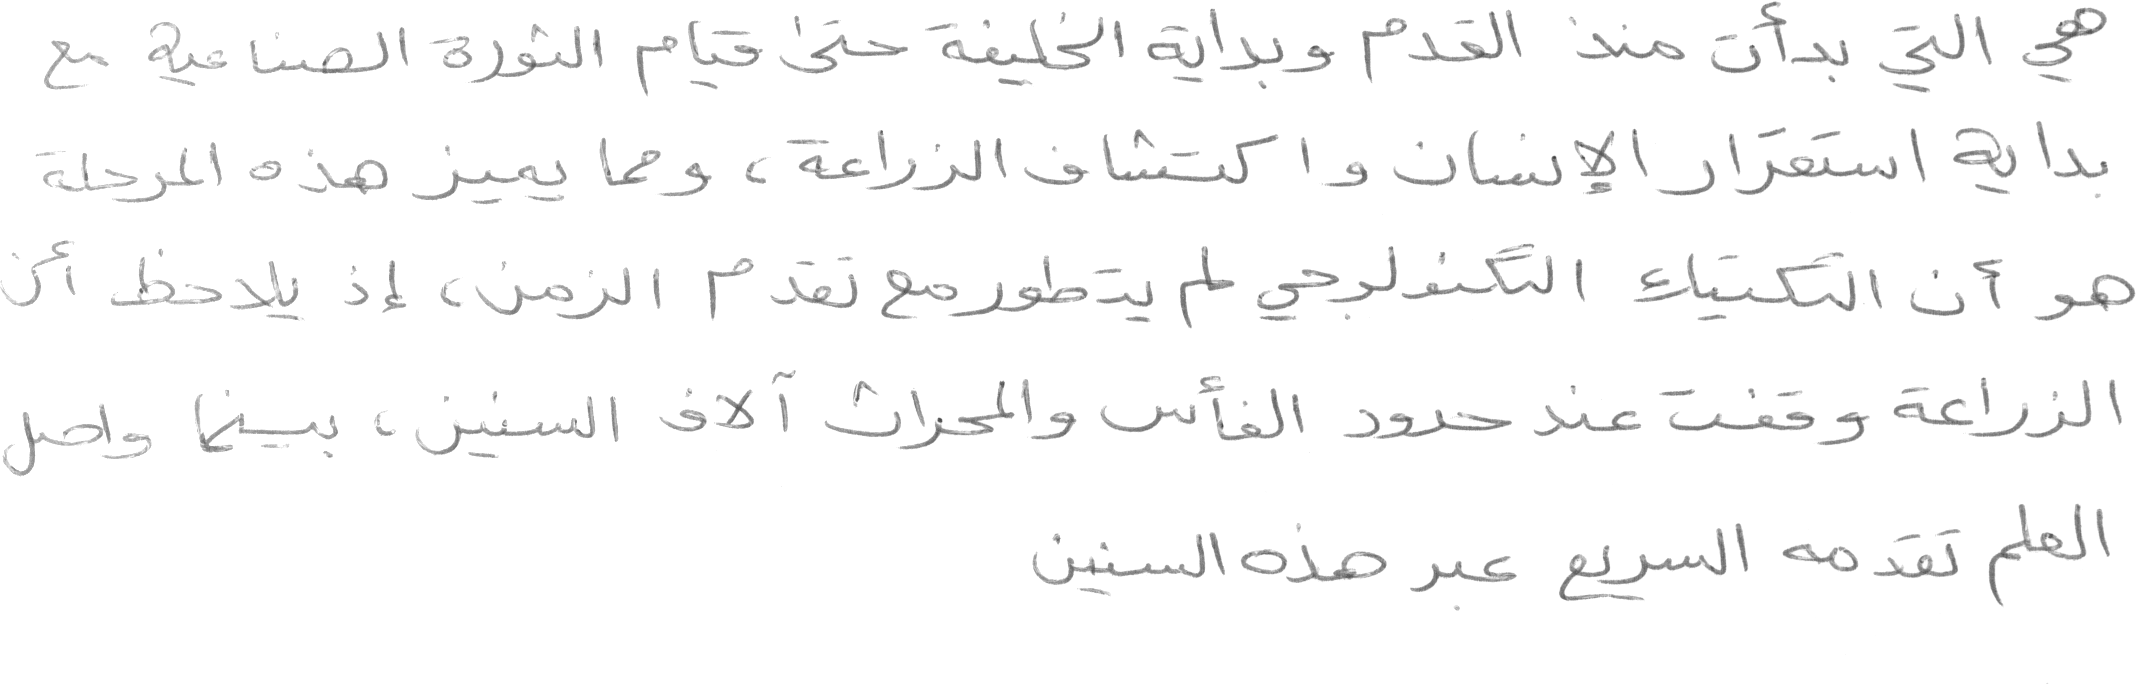 هي التي بدأت منذ القدم وبداية الخليفة حتى قيام الثورة الصناعية مع
بداية استقرار الإنسان واكتشاف الزراعة، ومما يميز هذه المرحلة
هو أن التكتيك التكنولوجي لم يتطور مع تقدم الزمن، إذ يلاحظ أن
الزراعة وقفت عند حدود الفأس والمحراث آلاف السنين، بينما واصل
العلم تقدمه السريع عبر هذه السنين